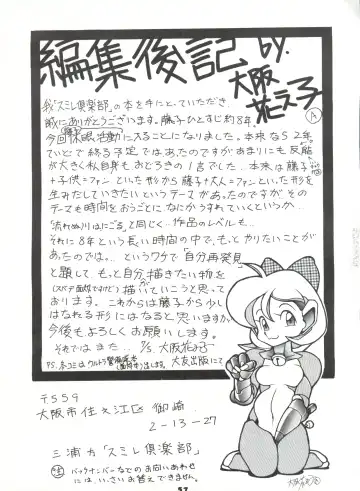 編集後記 by.
大阪花え子
我「スミレ倶楽部」の本を手にとっていただき
誠にありがとうございます。藤子ひとすじ約8年
今回休眠活動に入ることになりました。本来なら2年
ていどで終る予定ではあったのですがあまりにも反応
が大きく私自身もおどろきの1言でした…本来は藤子
+子供=ファンといった形から藤子+大人=ファンといった形を
生みだしていきたいというテーマがあったのですがその
テーマも時間をおうごとに、なにかうすれていくというか…
「流れぬ川はにごる」と同じく…作品のレベルも…
それに8年という長い時間の中で、もっとやりたいことが
あったのでは。。というワケで「自分再発見」
と題して、もっと自分描きたい物を
描いていこうと思って
おります。これからは藤子から少し
はなれる形にはなると思いますが
今後もよろしくお願いします。
それではまた… 大阪花え子
〒559
大阪市住之江区御崎
2-13-27
三浦方「スミレ倶楽部」
バックナンバーなどのお問いあわせ
には、いっさいお答えできません。
57